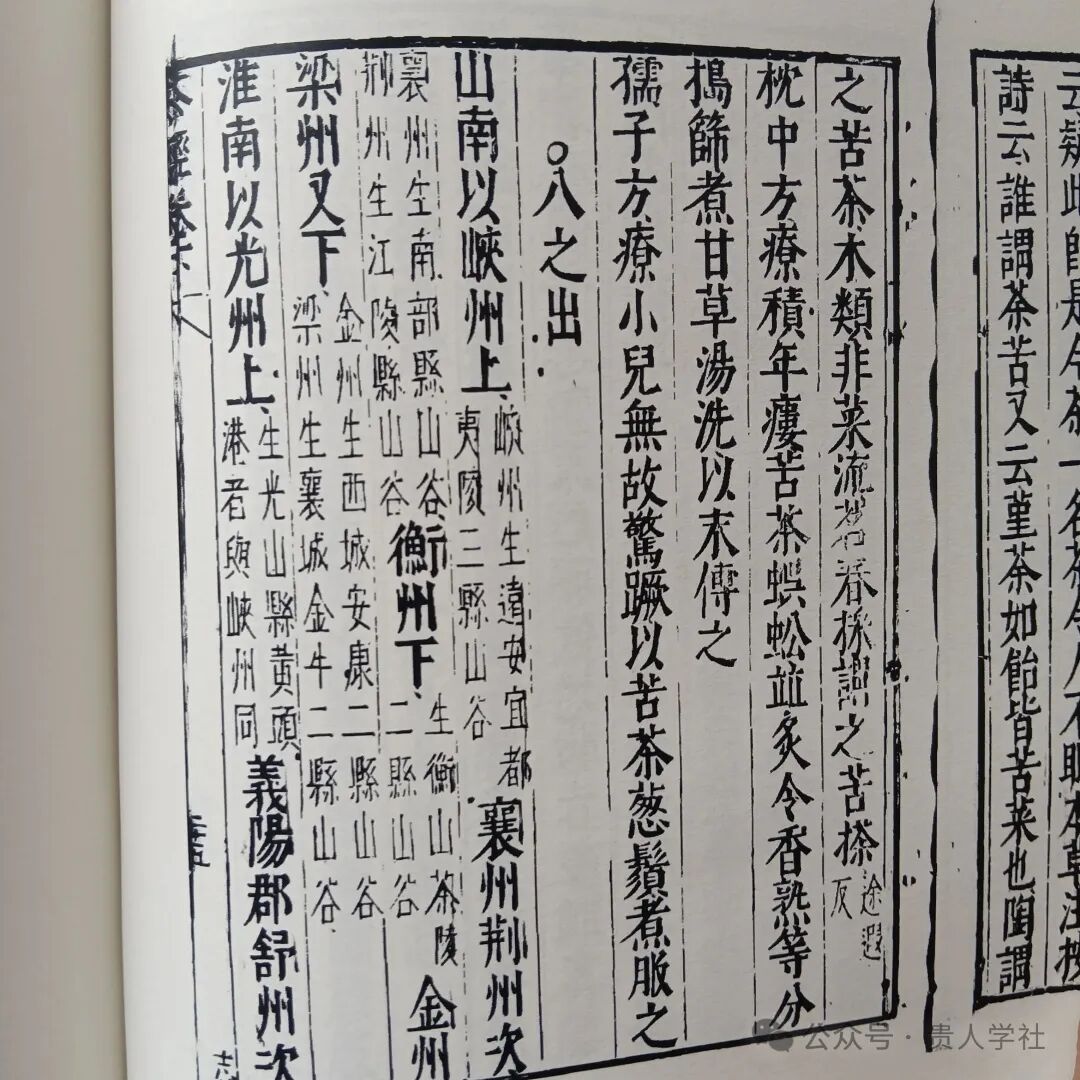 云疑此即是今茶一名茶令人不眠本草注按
詩云誰謂茶苦又云堇茶如飴皆苦菜也陶謂
之苦茶木類非菜流茗春採謂之苦搽途遐
反
枕中方療積年瘻苦茶蜈蚣並炙令香熟等分
搗篩煮甘草湯洗以末傅之
孺子方療小兒無故驚蹶以苦茶葱鬚煮服之
○八之出
山南以峽州上峽州生遠安宜都
夷陵三縣山谷
襄州荆州次
襄州生南部縣山谷
荆州生江陵縣山谷
衡州下生衡山茶陵
二縣山谷
金州
梁州又下金州生西城安康二縣山谷
梁州生襄城金牛二縣山谷
淮南以光州上生光山縣黃頭
港者與峽州同
義陽郡舒州次
茶經卷下
公众号·贵人学社